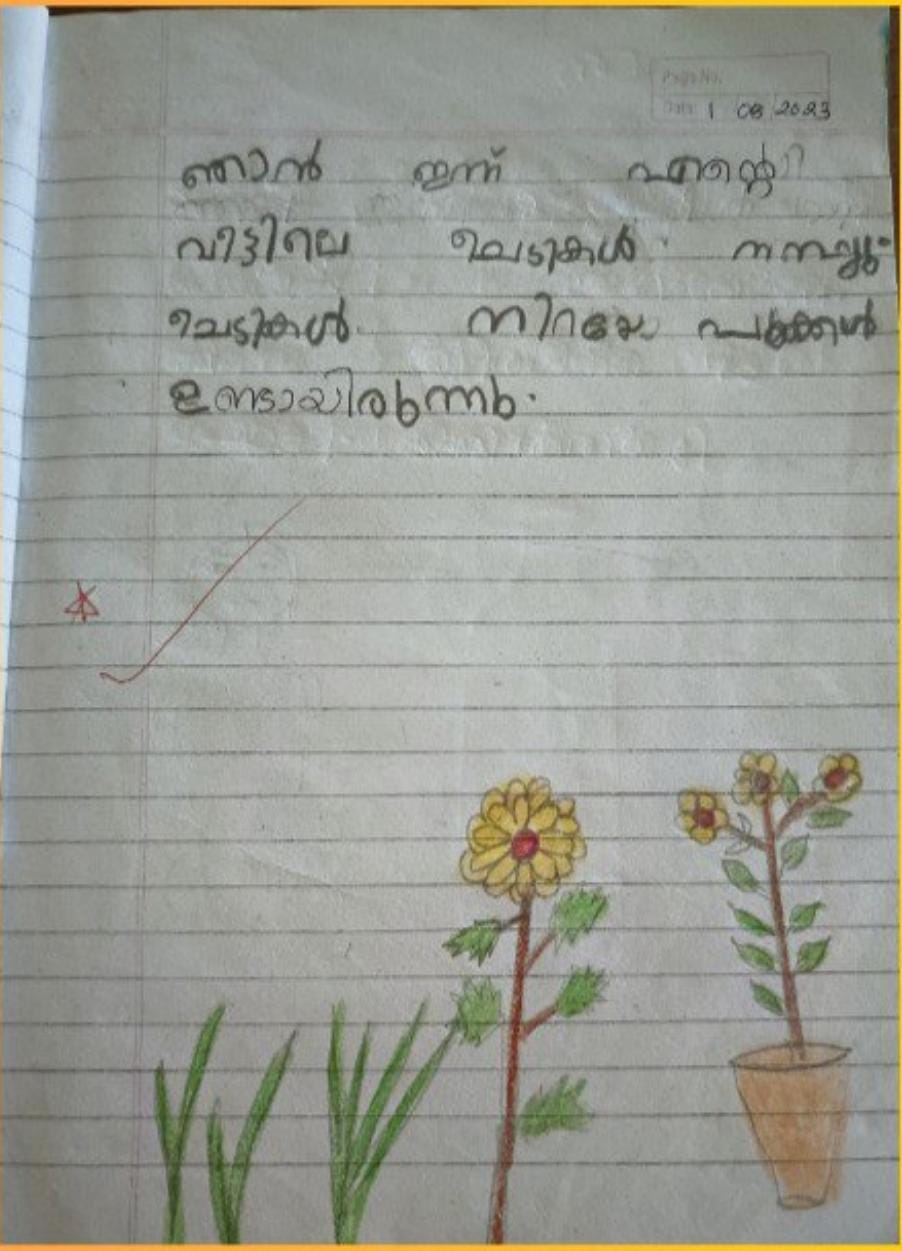 Page No.
Date 1 08 2023
ഞാൻ ഇന്ന് എന്റെ
വീട്ടിലെ ചെടികൾ നനച്ചു.
ചെടികൾ നിറയേ പൂക്കൾ
ഉണ്ടായിരുന്നു.